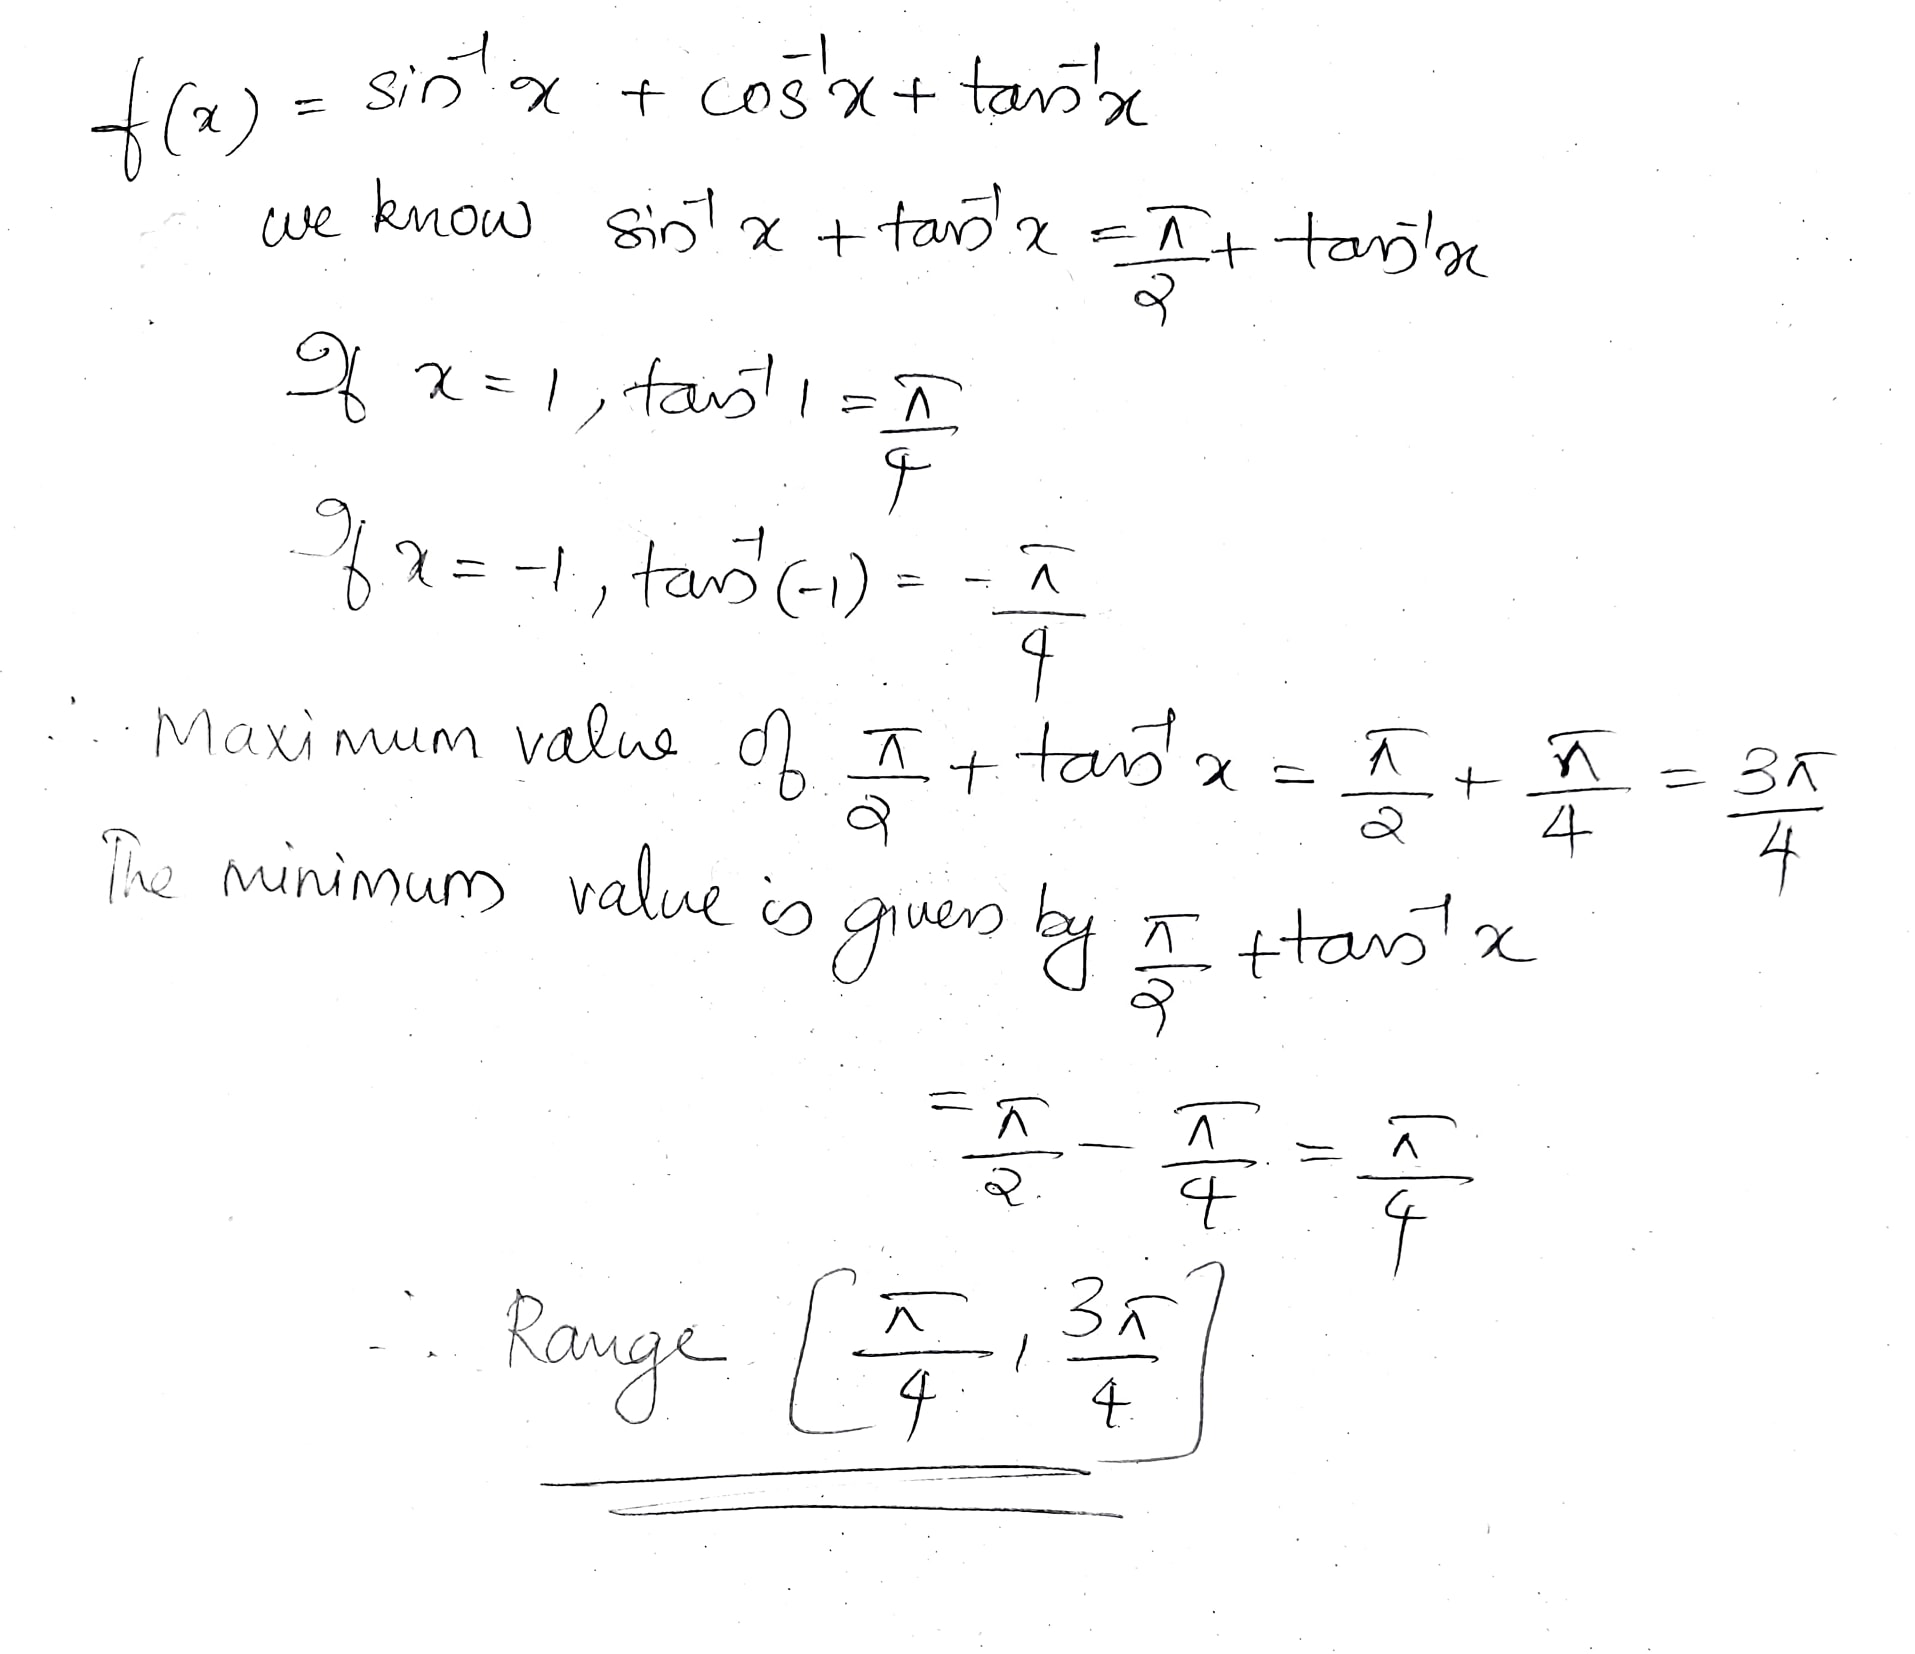 f(x) = sin⁻¹x + cos⁻¹x + tan⁻¹x
we know sin⁻¹ x + tan⁻¹ x = π/2 + tan⁻¹x
If x = 1, tan⁻¹ 1 = π/4
If x = -1, tan⁻¹(-1) = -π/4
∴ Maximum value of π/2 + tan⁻¹ x = π/2 + π/4 = 3π/4
The minimum value is given by π/2 + tan⁻¹ x
= π/2 - π/4 = π/4
∴ Range [π/4, 3π/4]